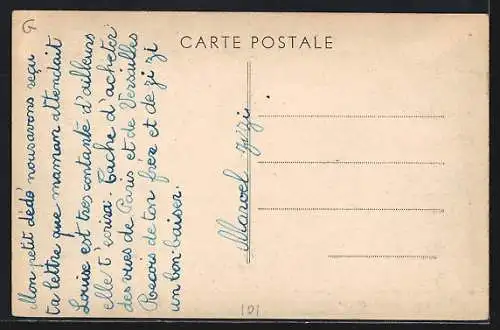 G
CARTE POSTALE
Mon petit dédé nous avons reçu
ta lettre que maman attendait
Louise est très contante d'ailleurs
elle t'écrira. Tache d'acheter
des vues de Paris et de Versailles
Reçois de ton frèr et de zizi
un bon baiser.
Marcel Zizi
101